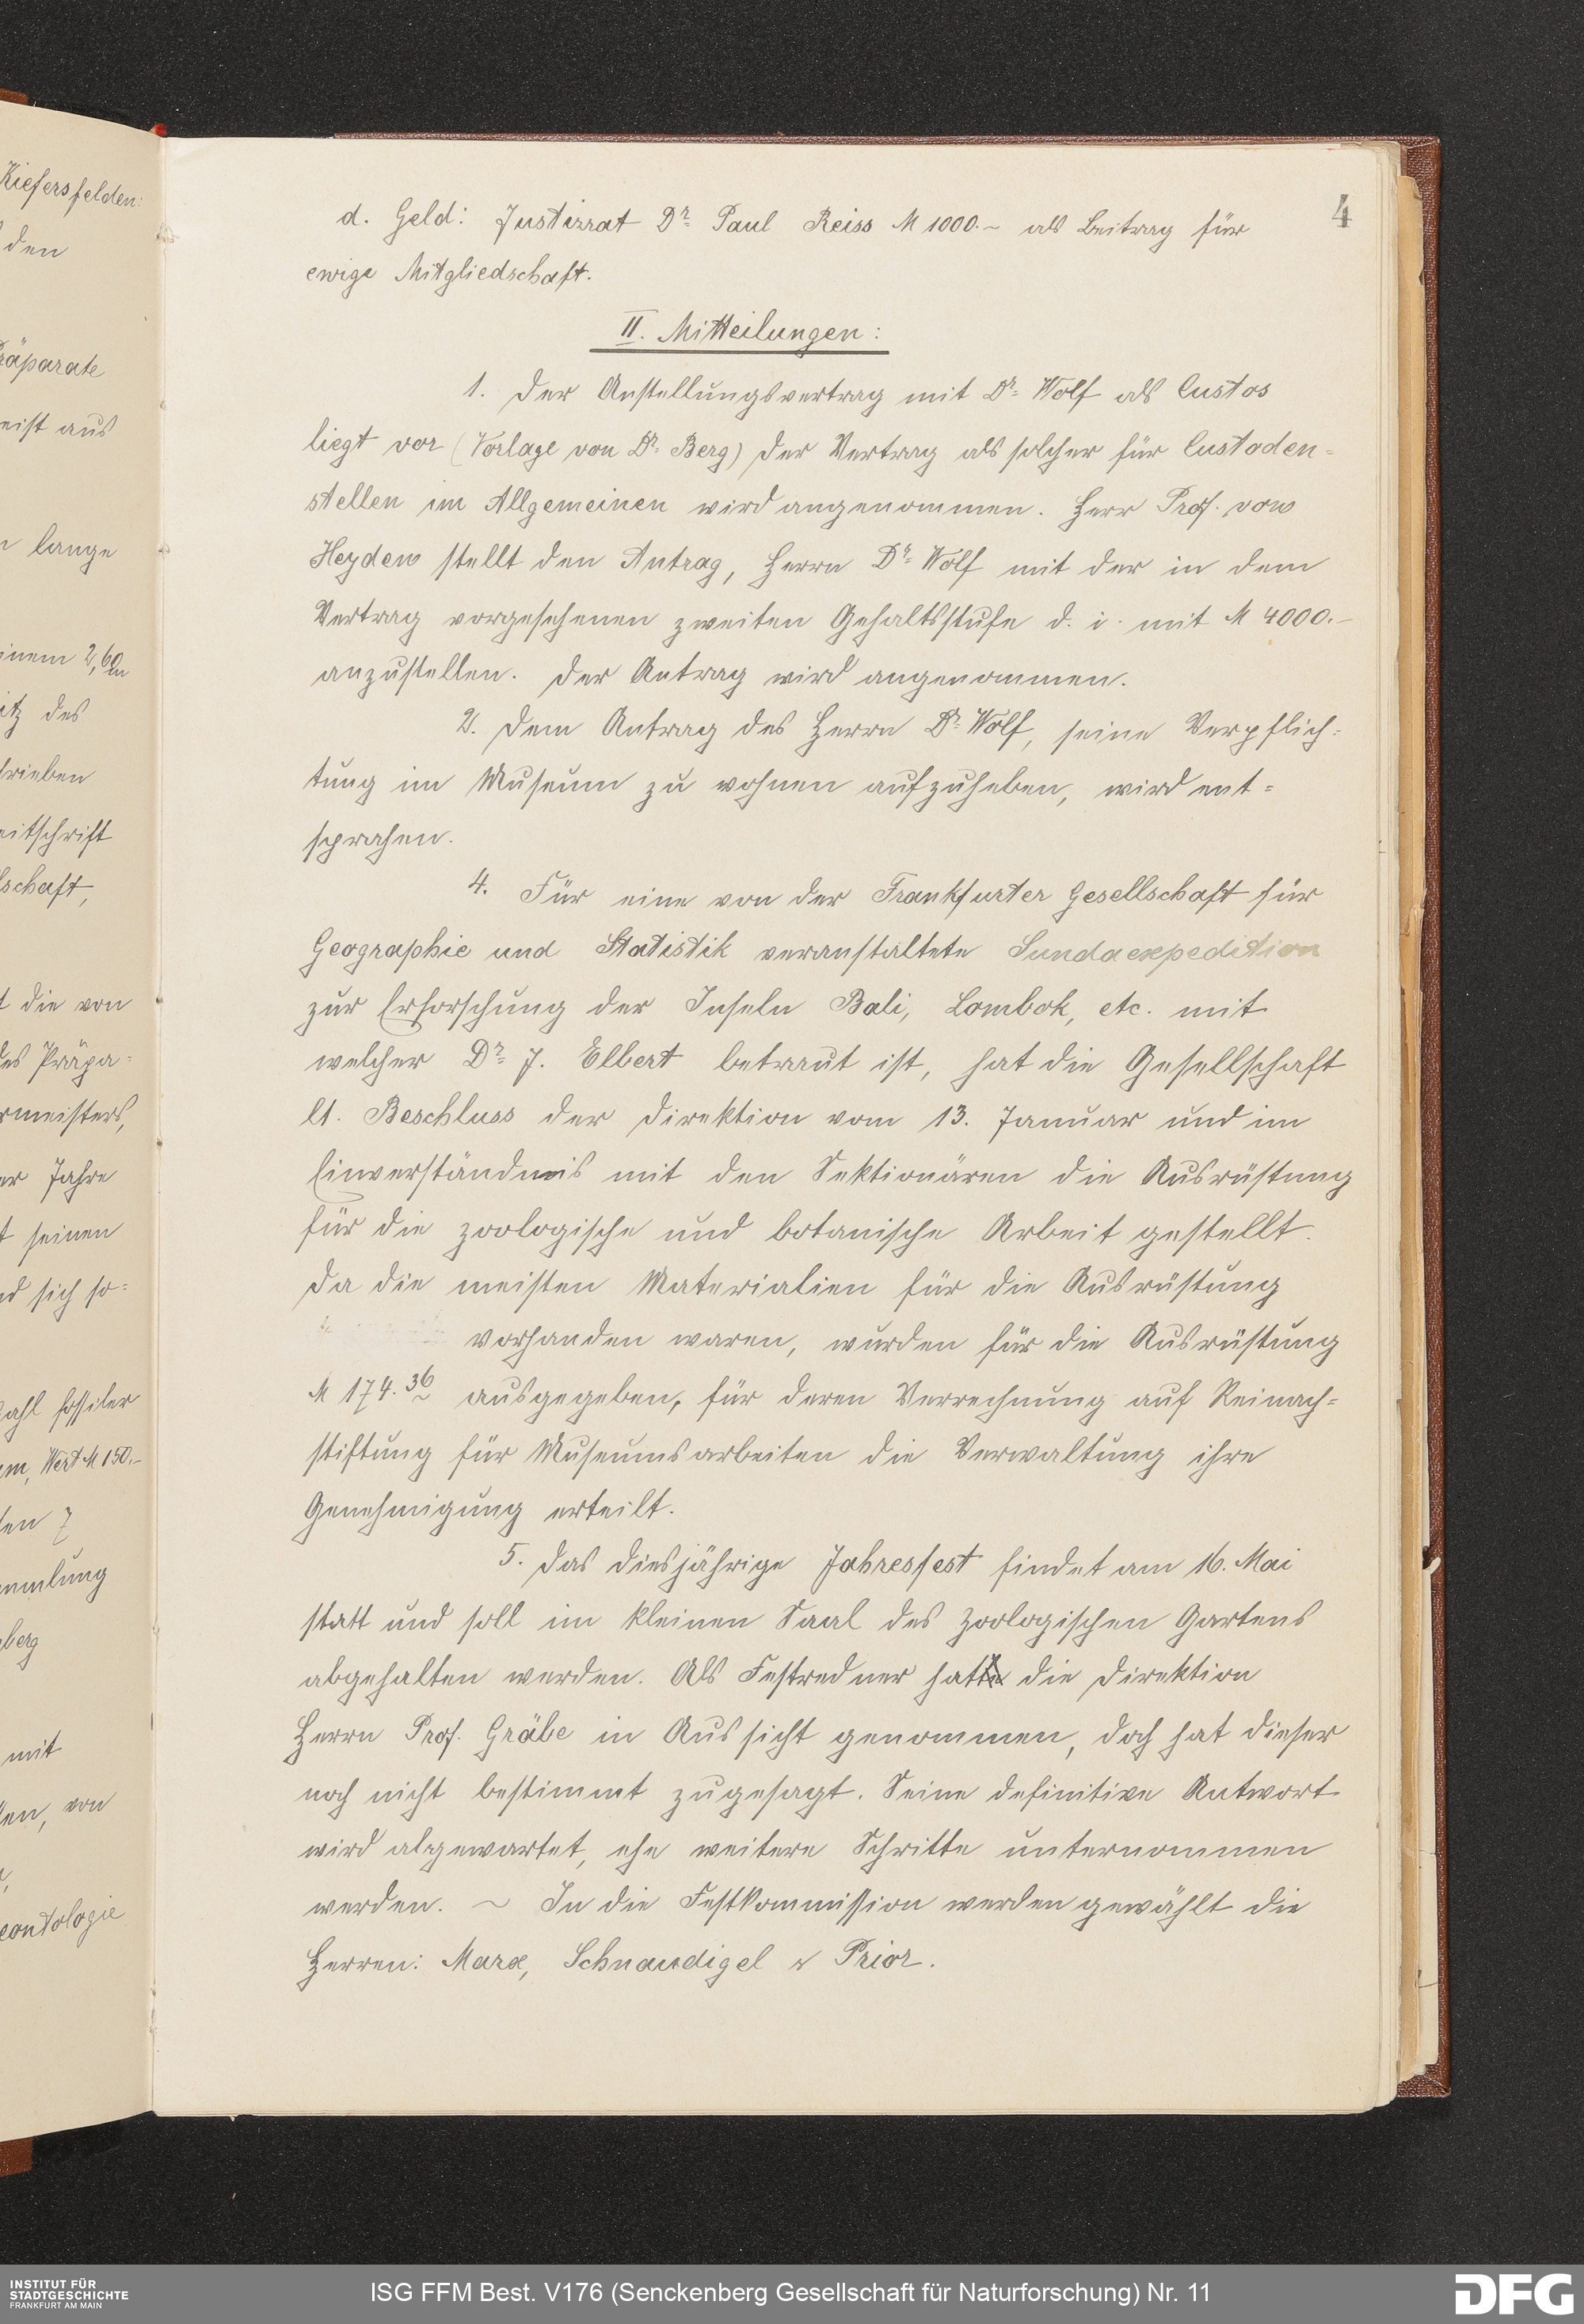 Kiefersfelden:
den
räparate
eist aus
lange
inem 2,60m
itz des
rieben
eitschrift
lschaft,
t die von
des Präpa=
rmeisters,
er Jahre
t seinen
nd sich so=
zahl fossiler
em, Wert M 150.-
len 7
mmlung
berg
mit
len, von
eontologie
4
d. Geld: Justizrat Dr. Paul Reiss M 1000.- als Beitrag für
ewige Mitgliedschaft.
II. Mitteilungen:
1. Der Anstellungsvertrag mit Dr. Wolf als Custos
liegt vor (Vorlage von Dr. Berg) Der Vertrag als solcher für Custoden-
stellen im Allgemeinen wird angenommen. Herr Prof. von
Heyden stellt den Antrag, Herrn Dr. Wolf mit der in dem
Vertrag vorgesehenen zweiten Gehaltsstufe d. i. mit M 4000.-
anzustellen. Der Antrag wird angenommen.
2. Dem Antrag des Herrn Dr. Wolf, seine Verpflich-
tung im Museum zu wohnen aufzuheben, wird ent-
sprochen.
4. Für eine von der Frankfurter Gesellschaft für
Geographie und Statistik veranstaltete Sundaexpedition
zur Erforschung der Inseln Bali, Lombok, etc. mit
welcher Dr. J. Elbert betraut ist, hat die Gesellschaft
lt. Beschluss der Direktion vom 13. Januar und im
Einverständnis mit den Sektionären die Ausrüstung
für die zoologische und botanische Arbeit gestellt.
Da die meisten Materialien für die Ausrüstung
vorhanden waren, wurden für die Ausrüstung
M 174.36 ausgegeben, für deren Verrechnung auf Reinach-
stiftung für Museumsarbeiten die Verwaltung ihre
Genehmigung erteilt.
5. Das diesjährige Jahresfest findet am 16. Mai
statt und soll im kleinen Saal des zoologischen Gartens
abgehalten werden. Als Festredner hat die Direktion
Herrn Prof. Gräbe in Aussicht genommen, doch hat dieser
noch nicht bestimmt zugesagt. Seine definitive Antwort
wird abgewartet, ehe weitere Schritte unternommen
werden. ~ In die Festkommission werden gewählt die
Herren: Marx, Schnaudigel & Prior.
INSTITUT FÜR
STADTGESCHICHTE
FRANKFURT AM MAIN
ISG FFM Best. V176 (Senckenberg Gesellschaft für Naturforschung) Nr. 11
DFG